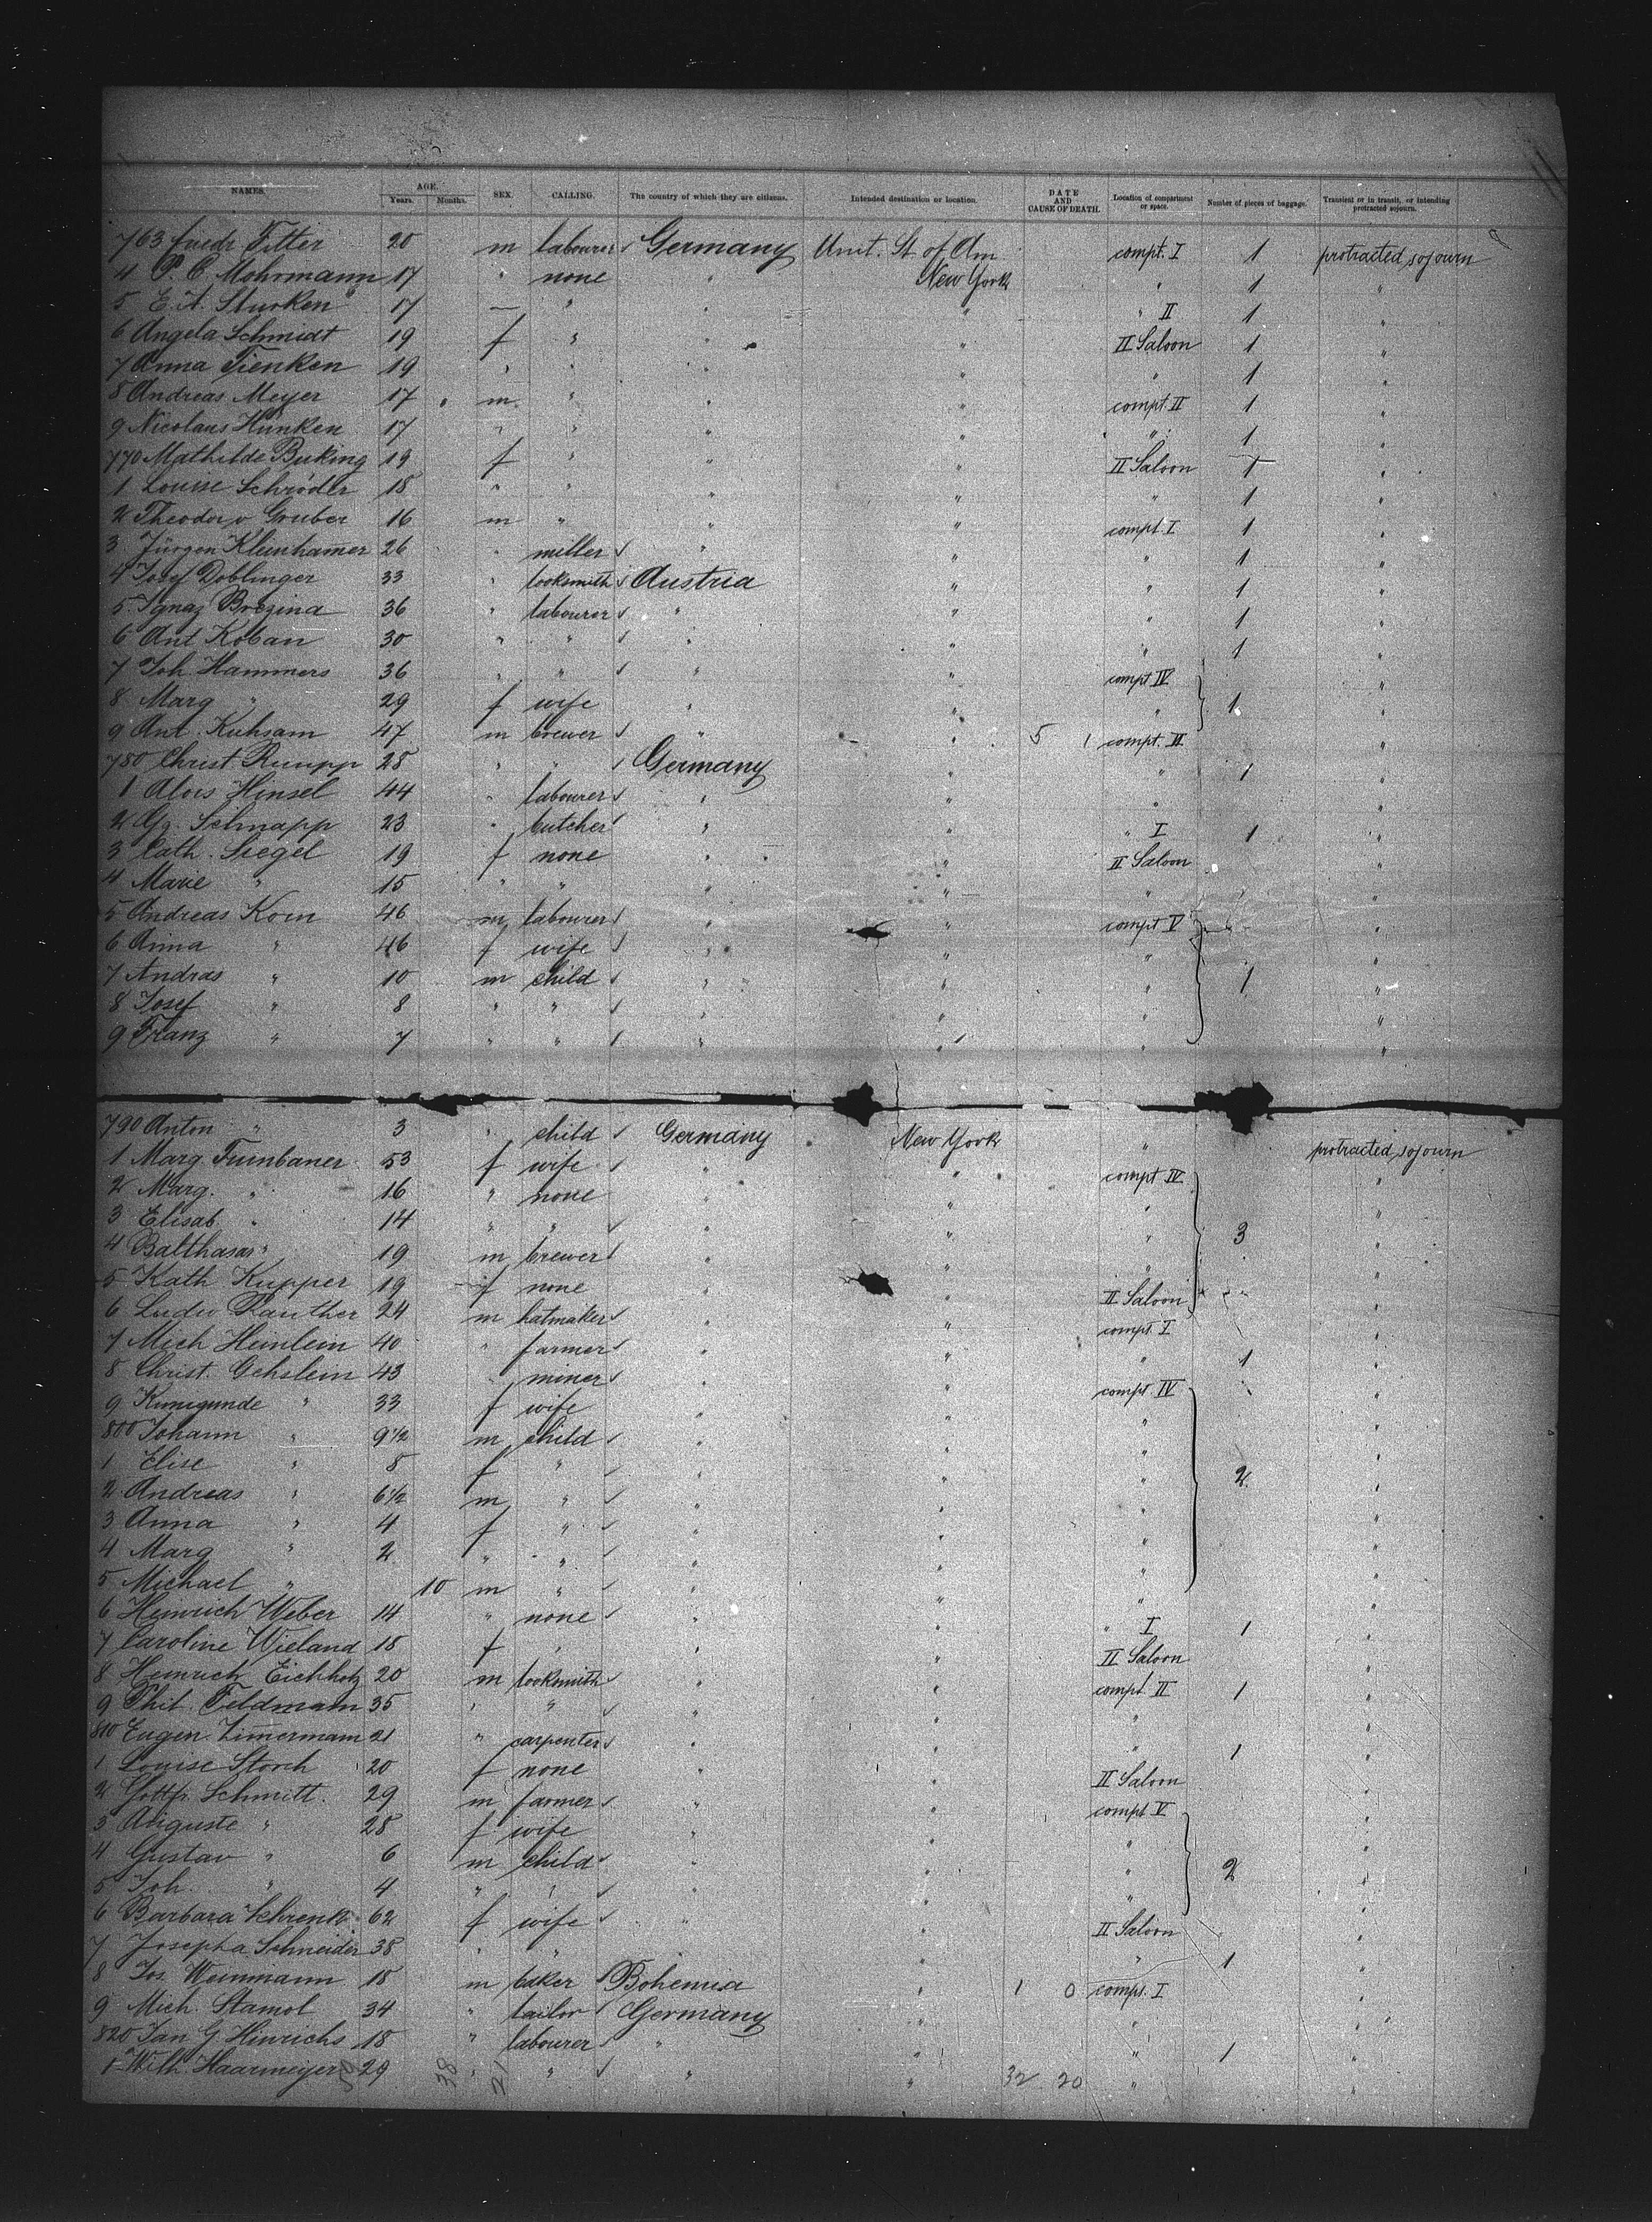 NAMES. AGE. Years. Months. SEX. CALLING. The country of which they are citizens. Intended destination or location. DATE AND CAUSE OF DEATH. Location of compartment or space. Number of pieces of baggage. Transient or in transit, or intending protracted sojourn.
763 Friedr Titter 20 m labourer Germany Unit. St. of Am compt. I 1 protracted sojourn
4 P. C. Mohrmann 17 " none " New York " 1 "
5 E. A. Sturken 17 — " " " " II 1 "
6 Angela Schmidt 19 f " " " II Saloon 1 "
7 Anna Tienken 19 " " " " " 1 "
8 Andreas Meyer 17 m " " " compt. II 1 "
9 Nicolaus Hünken 17 " " " " " 1 "
770 Mathilde Buking 19 f " " " II Saloon 1 "
1 Louise Schröder 18 " " " " " 1 "
2 Theodor v. Gruber 16 m " " " compt. I 1 "
3 Jürgen Kleinhamer 26 " miller " " " 1 "
4 Josef Doblinger 33 " locksmith Austria " " 1 "
5 Ignaz Brezina 36 " labourer " " " 1 "
6 Ant Koban 30 " " " " " 1 "
7 Joh Hammers 36 " " " " compt IV "
8 Marg " 29 f wife " " " 1 "
9 Ant. Kuhsam 47 m brewer " " 5 1 compt. II "
780 Christ Rupp 28 " " Germany " " 1 "
1 Alois Hinsel 44 " labourer " " " "
2 Gg. Schnapp 23 " butcher " " " I 1 "
3 Cath. Siegel 19 f none " " II Saloon "
4 Marie " 15 " " " " " "
5 Andreas Korn 46 m labourer " " compt V "
6 Anna " 46 f wife " " " "
7 Andras " 10 m child " " " 1 "
8 Josef " 8 " " " " " "
9 Franz " 7 " " " " " "
790 Anton " 3 " child Germany New York " protracted sojourn
1 Marg. 53 f wife " " compt IV "
2 Marg. " 16 " none " " " "
3 Elisab " 14 " " " " " 3 "
4 Balthasar " 19 m brewer " " " "
5 Kath Kupper 19 f none " " II Saloon "
6 Ludw Rauther 24 m hatmaker " " compt I "
7 Mich Heinlein 40 " farmer " " " 1 "
8 Christ. Gehslein 43 " miner " " compt IV "
9 Kunigunde " 33 f wife " " " "
800 Johann " 9 1/2 m child " " " "
1 Elise " 8 f " " " " 2 "
2 Andreas " 6 1/2 m " " " " "
3 Anna " 4 f " " " " "
4 Marg " 2 " " " " " "
5 Michael " 10 m " " " " "
6 Heinrich Weber 14 " none " " " I 1 "
7 Caroline Wieland 18 f " " " II Saloon "
8 Heinrich Eichholz 20 m locksmith " " compt II 1 "
9 Phil. Feldmann 35 " " " " " "
810 Eugen Zimermann 21 " carpenter " " " 1 "
1 Louise Storch 20 f none " " II Saloon "
2 Gottfr. Schmitt 29 m farmer " " compt V "
3 Auguste " 28 f wife " " " "
4 Gustav " 6 m child " " " 2 "
5 Joh. " 4 " " " " " "
6 Barbara Schrenk 62 f wife " " II Saloon "
7 Josepha Schneider 38 " " " " " 1 "
8 Jos. Weinmann 18 m baker Bohemia " 1 0 compt. I "
9 Mich. Stamol 34 " tailor Germany " " "
820 Jan G. Hinrichs 18 " labourer " " " 1 "
1 Wilh. Haarmeyer 29 38 21 " " " " 32 20 " "